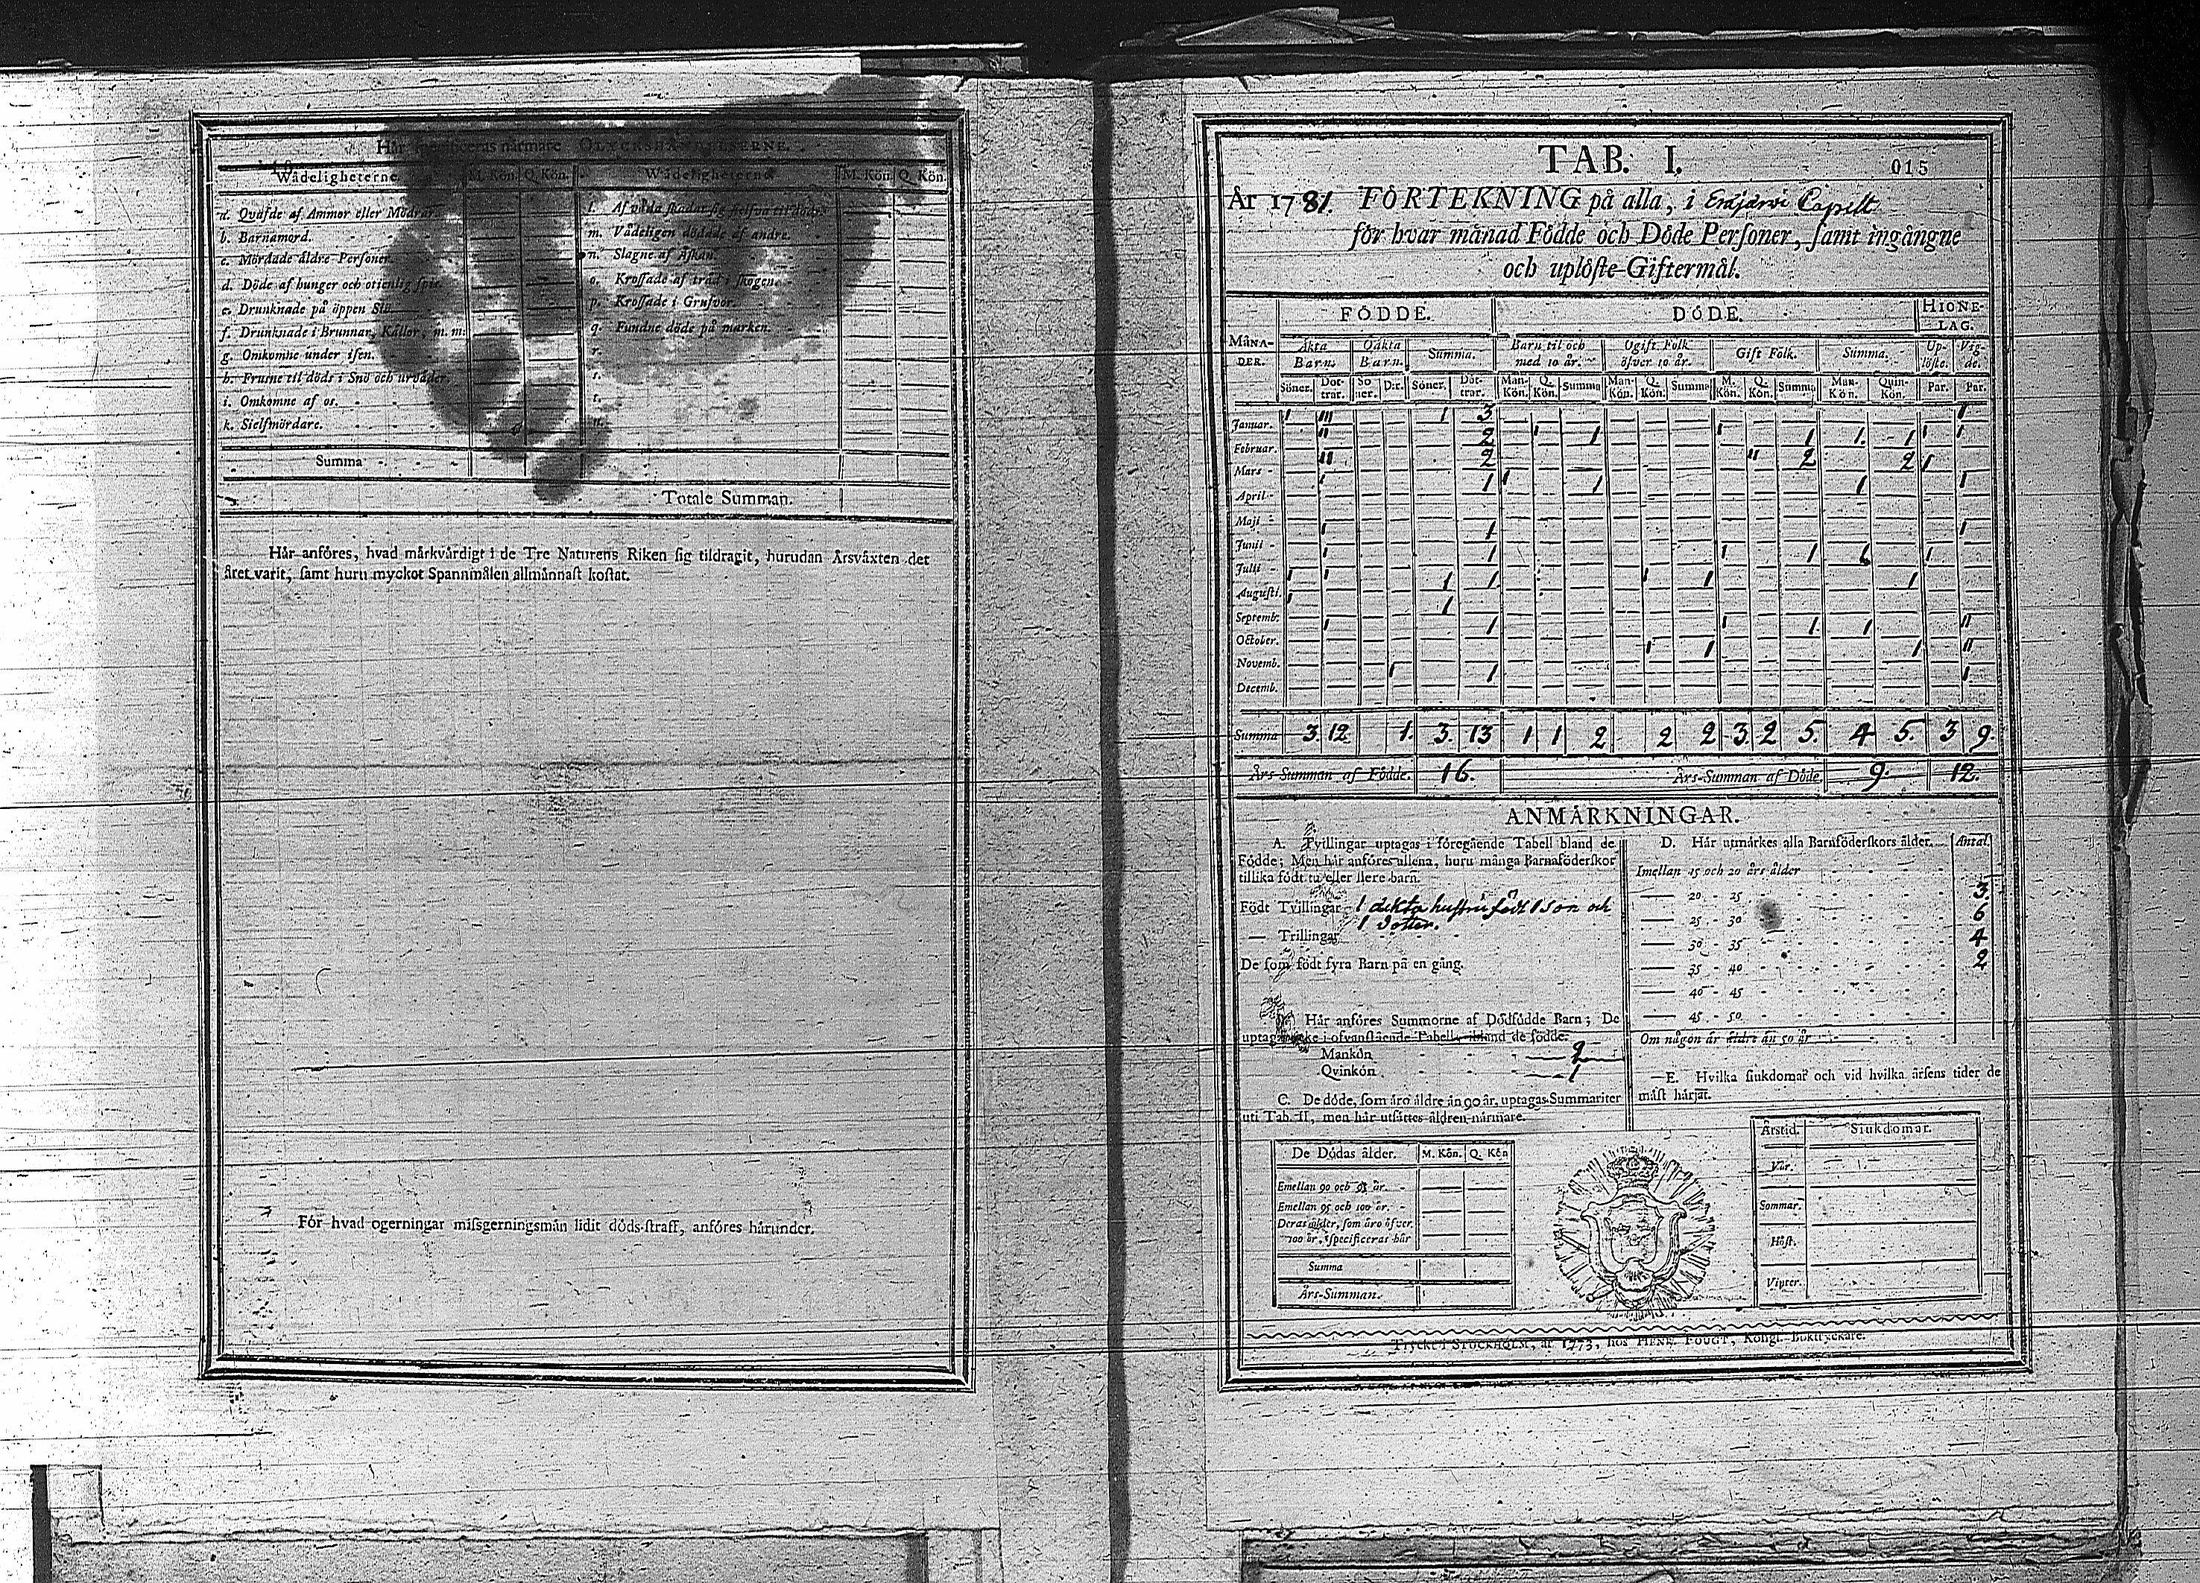 Hår specificeras nårmare OLYCKSHÅNDELSERNE.
Wådeligheterne. M. Kön. Q. Kön. Wådeligheterne M. Kön. Q. Kön.
a. Qväfde af Ammor eller Mödrar
b. Barnamord.
c. Mördade äldre Personer
d. Döde af hunger och otienlig spis
e. Drunknade på öppen Siö
f. Drunknade i Brunnar, Källor, m. m.
g. Omkomne under isen.
h. Frusne til döds i Snö och urväder
i. Omkomne af os.
k. Sielfmördare.
l. Af våda skadat sig sielfva til döds
m. Vådeligen dödade af andre.
n. Slagne af Åskan.
o. Krossade af träd i skogen.
p. Krossade i Grufvor.
q. Fundne döde på marken.
r.
s.
t.
u.
Summa
Totale Summan.
Hår anföres, hvad mårkvårdigt i de Tre Naturens Riken sig tildragit, hurudan Årsvåxten det
året varit, samt huru myckot Spannmålen allmånnast kostat.
För hvad ogerningar missgerningsmån lidit döds-straff, anföres hårunder.
TAB. I.
015
År 1781. FÖRTEKNING på alla, i Eräjärvi Capell
för hvar månad Födde och Döde Personer, samt ingångne
och uplöste Giftermål.
MÅNADER. FÖDDE. DÖDE. HIONELAG.
Äkta Barn. Oäkta Barn. Summa. Barn til och med 10 år. Ogift Folk öfver 10 år. Gift Folk. Summa. Uplöste. Vigde.
Söner. Döttrar. Söner. D:r. Söner. Döttrar. Man-Kön. Q. Kön. Summa Man-Kön. Q. Kön. Summa M. Kön. Q. Kön. Summa Man-Kön. Quin-Kön. Par. Par.
Januar. 1 111 1 3 1
Februar. 11 2 1 1 1 1 1. 1 1 1
Mars 11 2 11 2 2 1
April 1 1 1 1 1 1
Maji
Junii 1 1 1
Julii 1 1 1 1 1
Augusti. 1 1 1 1 1 1 1
Septemb. 1 1
October. 1 1 1 1 1 11
Novemb. 1 1 1 11
Decemb. 1 1 1
Summa 3 12 1. 3 13 1 1 2 2 2 3 2 5. 4 5. 3 9.
Års-Summan af Födde. 16. Års-Summan af Döde. 9. 12.
ANMÅRKNINGAR.
A. Tvillingar uptagas i föregående Tabell bland de
Födde; Men hår anföres allena, huru många Barnaföderskor
tillika födt tu eller flere barn.
Födt Tvillingar 1 äkta hustru födt 1 son och
1 dotter.
— Trillingar
De som födt fyra Barn på en gång.
Hår anföres Summorne af Dödfödde Barn; De
uptagas icke i ofvanstående Tabell ibland de födde.
Mankön 2
Qvinkön 1
C. De döde, som åro åldre ån 90 år, uptagas Summariter
uti Tab. II, men hår utsåttes åldren nårmare.
De Dödas ålder. M. Kön. Q. Kön
Emellan 90 och 95 år.
Emellan 95 och 100 år.
Deras ålder, som äro öfver
100 år, specificeras här
Summa
Års-Summan.
D. Hår utmårkes alla Barnföderskors ålder. Antal.
Imellan 15 och 20 års ålder
— 20 - 25 3
— 25 - 30 6
— 30 - 35 4
— 35 - 40 2
— 40 - 45
— 45 - 50
Om någon är äldre än 50 år
E. Hvilka siukdomar och vid hvilka årsens tider de
måst hårjat.
Årstid. Siukdomar.
Vår.
Sommar.
Höst.
Vinter.
Tryckt i STOCKHOLM, år 1773, hos HENR. FOUGT, Kongl. Boktryckare.